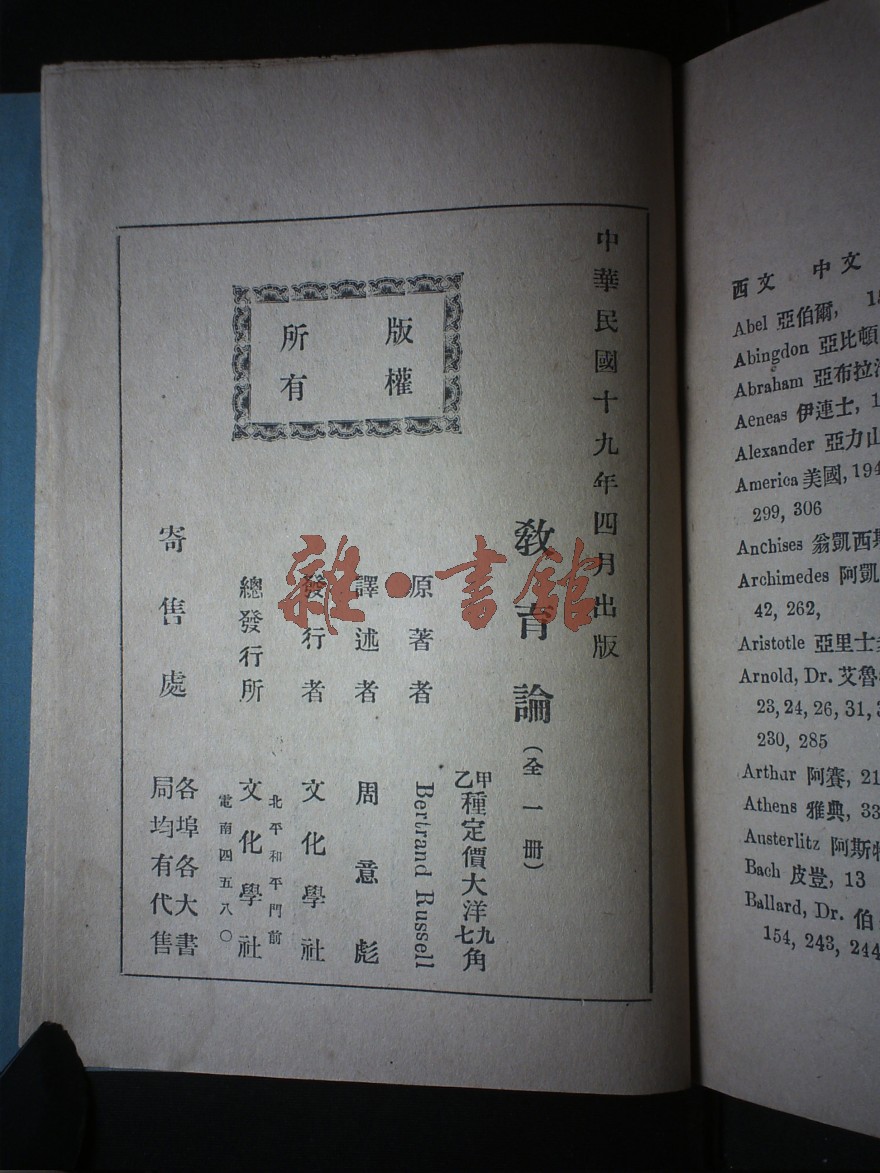 中華民國十九年四月出版
版權
所有
教育論(全一冊)
甲乙種定價大洋九七角
原著者 Bertrand Russell
譯述者 周意彪
發行者 文化學社
北平和平門前
總發行所 文化學社
電南四五八〇
寄售處 各埠各大書局均有代售
雜·書館
西文 中文
Abel 亞伯爾,
Abingdon 亞比頓
Abraham 亞布拉
Aeneas 伊連士, 1
Alexander 亞力山
America 美國, 194
299, 306
Anchises 翁凱西斯
Archimedes 阿凱
42, 262,
Aristotle 亞里士
Arnold, Dr. 艾魯
23, 24, 26, 31, 3
230, 285
Arthur 阿賽, 21
Athens 雅典, 33
Austerlitz 阿斯特
Bach 皮豈, 13
Ballard, Dr. 伯
154, 243, 244